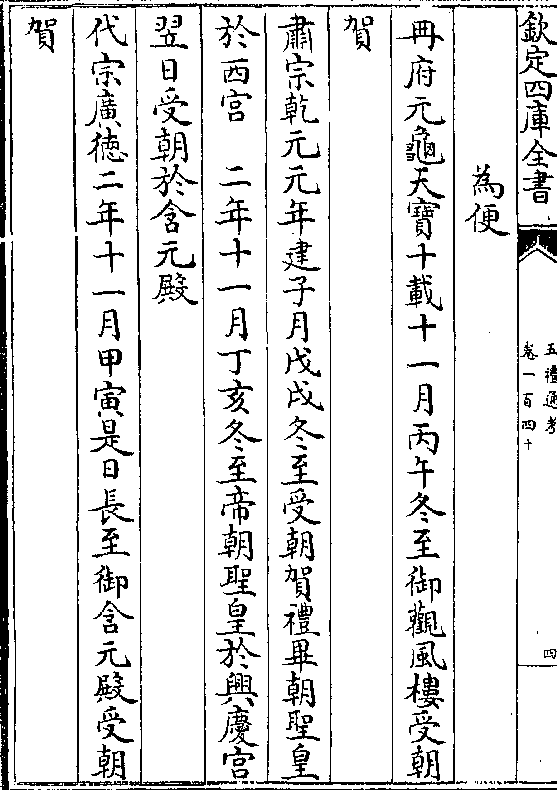 欽定四庫全書
五禮通考
卷一百四十
四
為便
冊府元龜天寶十載十一月丙午冬至御觀風樓受朝
賀
肅宗乾元元年建子月戊戌冬至受朝賀禮畢朝聖皇
於西宫　二年十一月丁亥冬至帝朝聖皇於興慶宫
翌日受朝於含元殿
代宗廣徳二年十一月甲寅是日長至御含元殿受朝
賀